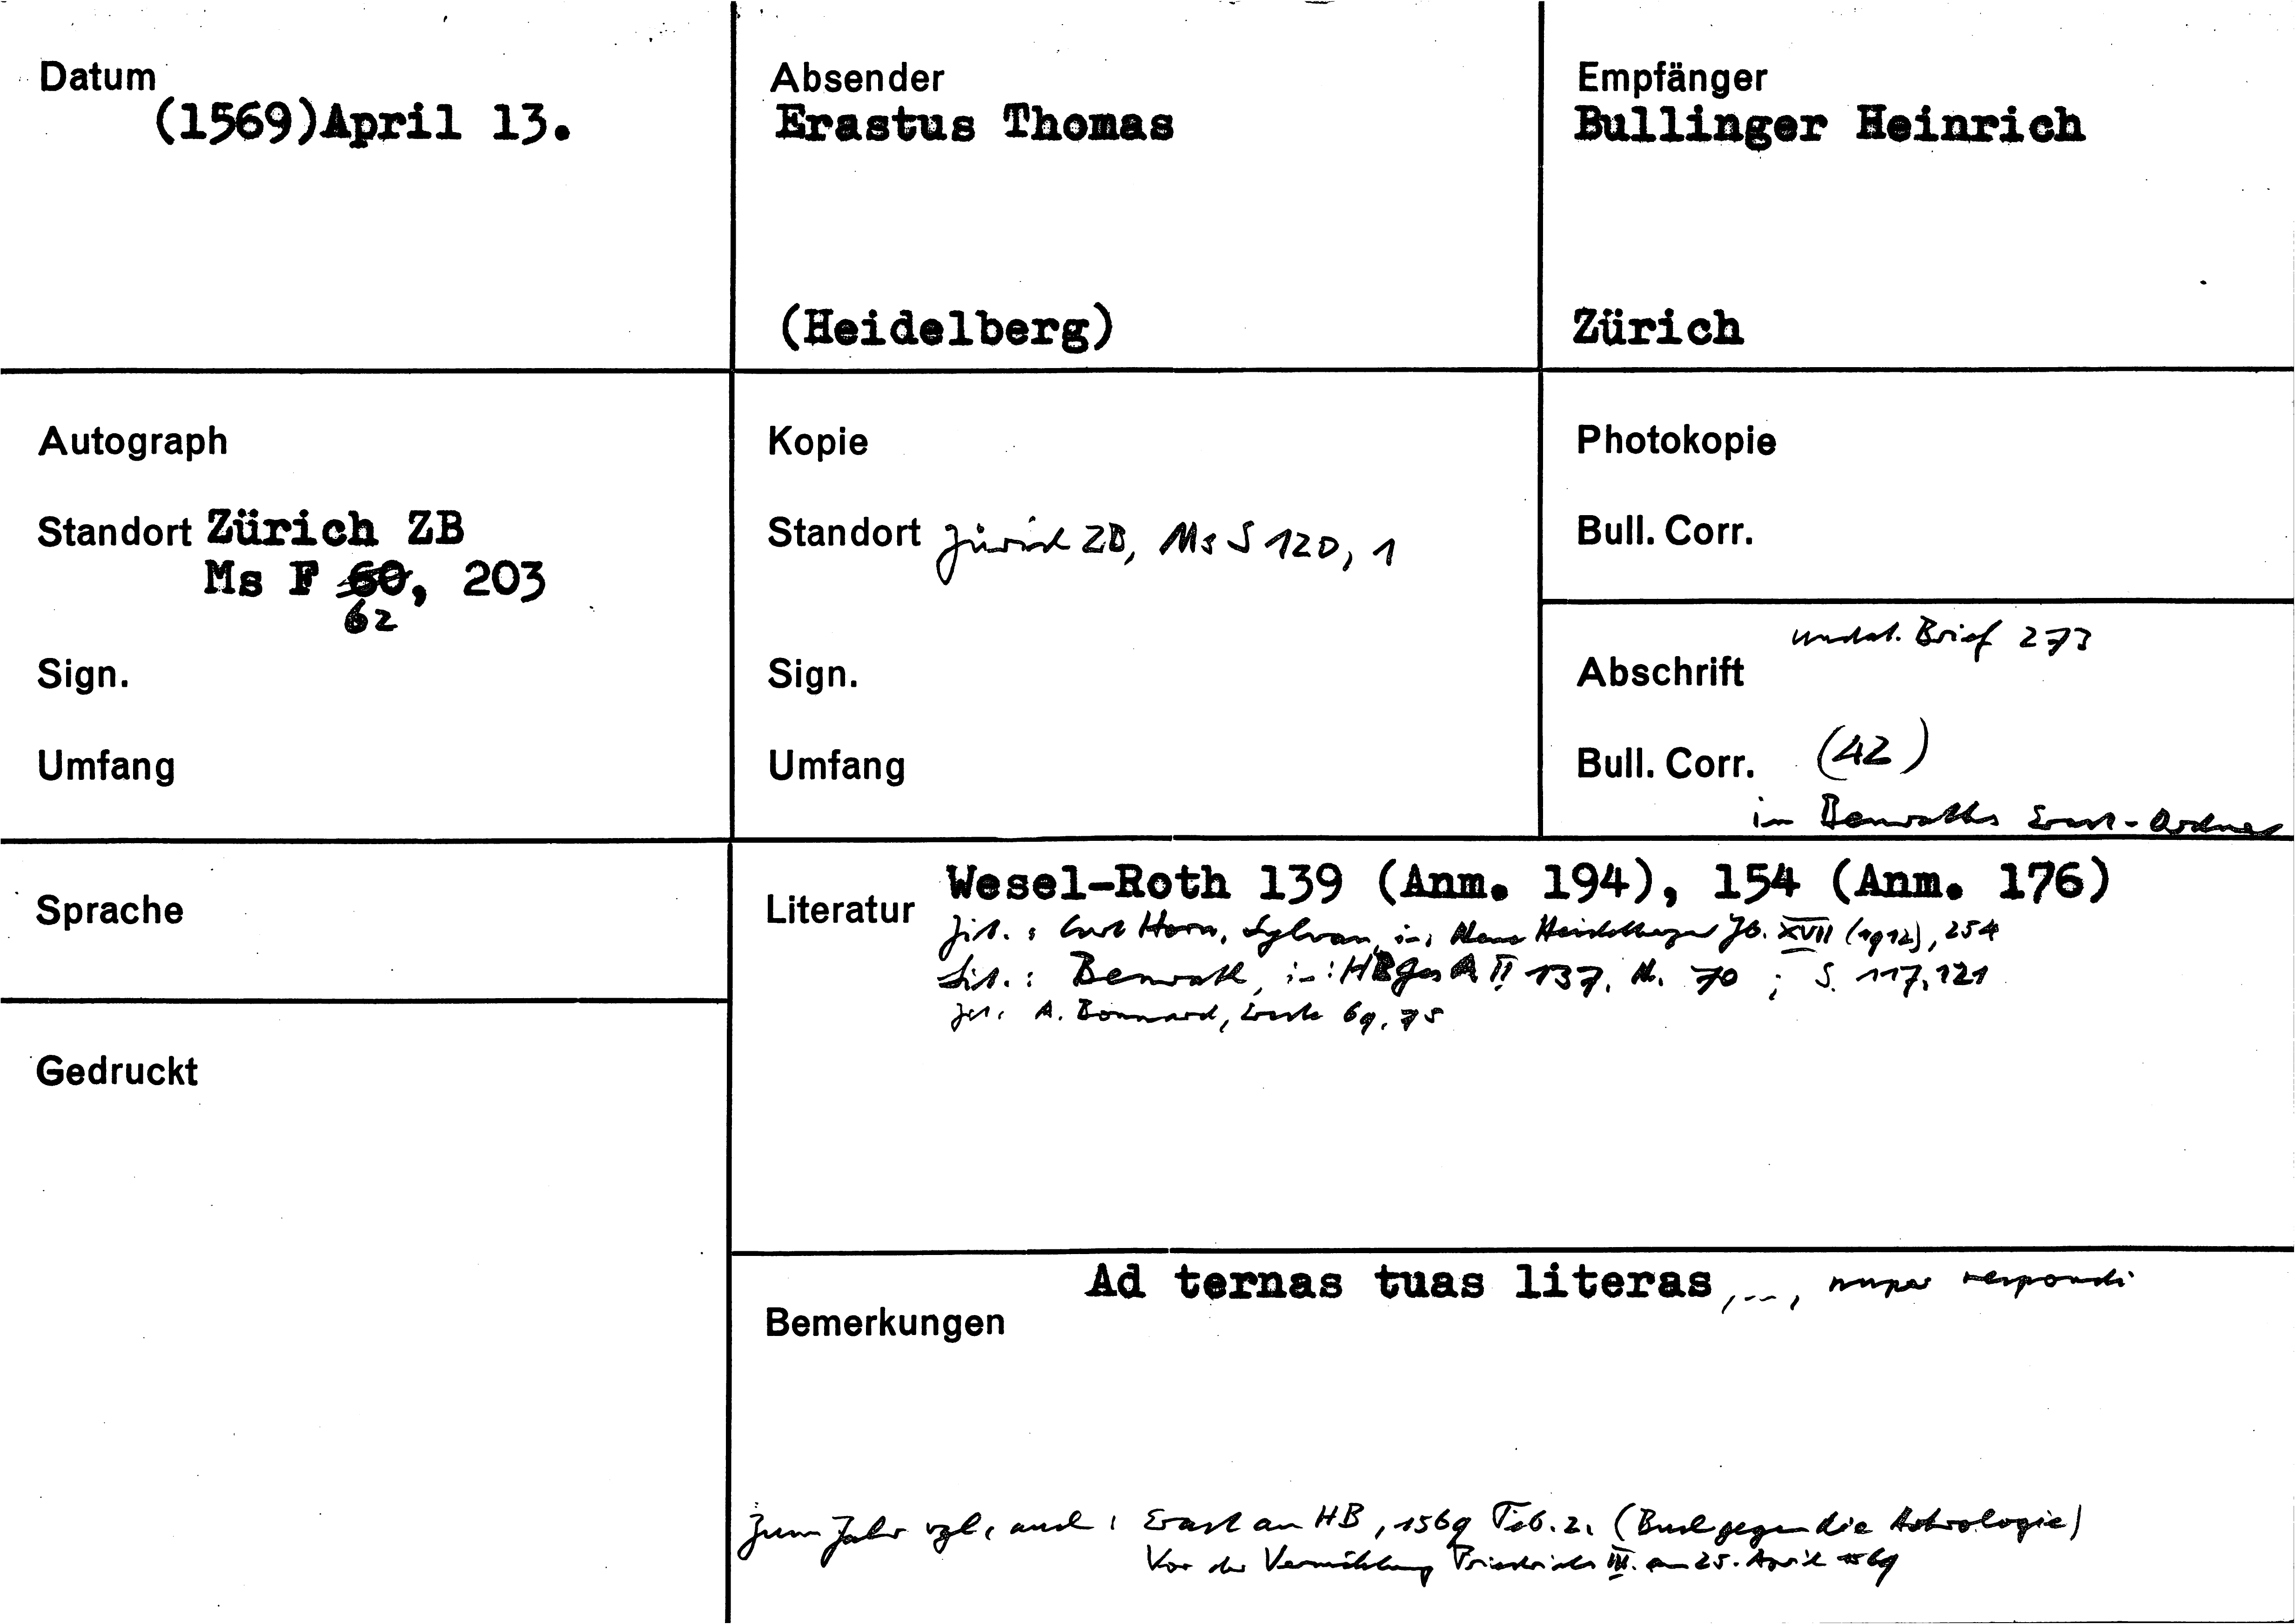 Datum
(1569)April 13.
Absender
Erastus Thomas
(Heidelberg)
Empfänger
Bullinger Heinrich
Zürich
Autograph
Standort Zürich ZB
Ms F 60, 203
62
Sign.
Umfang
Kopie
Standort Zürich ZB, Ms S 120, 1
Sign.
Umfang
Photokopie
Bull. Corr.
undat. Brief 273
Abschrift
Bull. Corr. (42)
in Benraths Erast-Ordner
Sprache
Gedruckt
Literatur
Wesel-Roth 139 (Anm. 194), 154 (Anm. 176)
Zit.: Curt Horn, Sylvan, in: Neue Heidelberger Jb. XVII (1912), 254
Lit.: Benrath, in: HBGesA II 137, N. 70; S. 117, 121
A. Bonnard, 69, 75
Bemerkungen
Ad ternas tuas literas,..., nuper respondi
Zum Jahr vgl. auch: Erast an HB, 1569 Feb. 2. (Buch gegen die Astrologie)
Vor der Vermählung Friedrichs III. am 25. April 1569